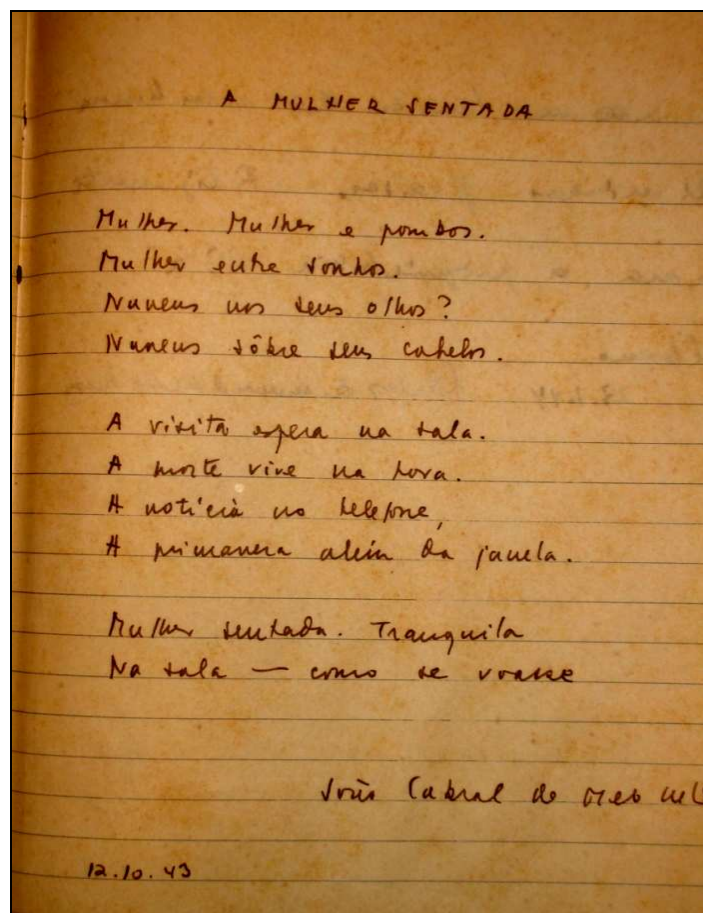 A MULHER SENTADA
Mulher. Mulher e pombos.
Mulher entre sonhos.
Nuvens nos seus olhos?
Nuvens sôbre seus cabelos.
A visita espera na sala.
A morte vive na hora.
A notícia no telefone,
A primavera além da janela.
Mulher sentada. Tranquila
Na sala — como se voasse
João Cabral de Melo
12.10.43